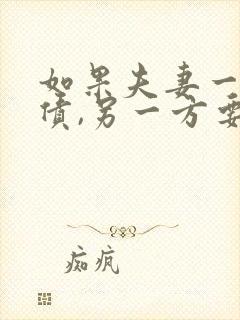 如果夫妻一
债,另一方要
痴疯